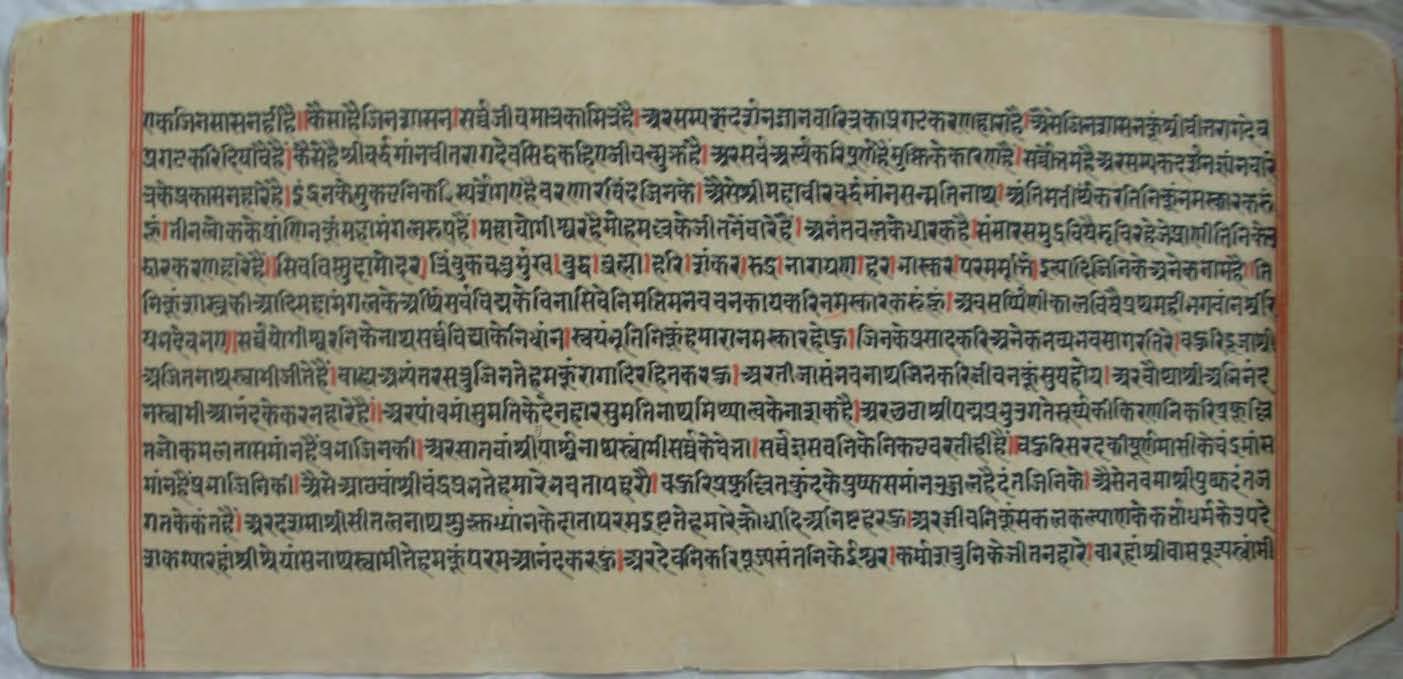 एकजिनसासनहींहै।कैसाहैजिनशासन।सर्व्वजीवमात्रकामित्रहै।अरसम्यकदर्शनज्ञानचारित्रकाप्रगटकरणहाराहै।अैसेजिनशासनकूंश्रीवीतरागदेव
प्रगटकरिदियावैहै।कैसेहैश्रीवर्द्धमांनवीतरागदेवसिद्धकहिएजीवन्मुक्तहै।अरसर्वअर्थकरिपूर्णहैमुक्तिकेकारणहै।सर्वोत्तमहैअरसम्यकदर्शनज्ञांनचारि
त्रकेप्रकासनहारेहै।इंद्रनकेमुकटनिकरिस्पर्शेगएहैचरणारविंदजिनके।अैसेश्रीमहावीरवर्द्धमांनसन्मतिनाथ।अंतिमतीर्थंकरतिनिकूंनमस्कारकरूं
हूं।तीनलोककेप्रांणिनकूंमहामंगलरूपहै।महायोगीश्वरहैमोहमल्लकेजीतनेंवारेहै।अनंतबलकेधारकहै।संसारसमुद्रविषैडूबिरहेजेप्राणीतिनिकेउ
द्धारकरणहारेहै।सिवविस्नुदामोदर।त्रिंबुकचतुर्मुख।बुद्ध।ब्रह्मा।हरि।शंकर।रुद्र।नारायण।हर।भास्कर।परममूर्त्ति।इत्यादिजिनिकेअनेकनामहै।ति
निकूंशास्त्रकीआदिमहामंगलकेअर्थिसर्वविघ्नकेविनासिवेनिमतिमनवचनकायकरिनमस्कारकरूंहूं।अवसर्पिणीकालविषैप्रथमहीभगवांनश्रीरि
षभदेवभए।सर्व्वयोगीश्वरनिकेनाथसर्व्वविद्याकेनिधांन।स्वयंभूतिनिकूंहमारानमस्कारहोऊ।जिनकेप्रसादकरिअनेकभव्यभवसागरतिरे।बऊरिदूजाश्री
अजितनाथस्वामीजीतेहै।बाह्यअभ्यंतरसत्रुजिनतेहमकूंरागादिरहितकरऊ।अरतीजासंभवनाथजिनकरिजीवनकूंसुषहोय।अरचौथाश्रीअभिनंद
नस्वामीआनंदकेकरनहारेहै।अरपांचमांसुमतिकेदेनहारसुमतिनाथमिथ्यात्वकेनाशकहै।अरछठाश्रीपद्मप्रभुउगतेसूर्यकीकिरणनिकरिप्रफूल्लि
तभोकमलतासमांनहैप्रभाजिनकी।अरसातवांश्रीपार्श्वनाथस्वांमीसर्व्वकेवेता।सर्वज्ञसबनिकेनिकटवरतीहीहै।बऊरिसरदकीपूर्णमासीकेचंद्रमांस
मांनहैप्रभाजिनिकी।अैसेआठवांश्रीचंद्रप्रभतेहमारेभवतापहरौ।बऊरिप्रफुल्लितकुंदकेपुष्पसमांनउज्जलहैदंतजिनिके।अैसेनवमाश्रीपुष्पदंतज
गतकेकंतहै।अरदशमाश्रीसीतलनाथशुक्लध्यांनकेदातापरमइष्टतेहमारेक्रोधादिअनिष्टहरऊ।अरजीवनिकूंसकलकल्याणकेकर्त्ताधर्मकेउपदे
शकग्यारहांश्रीश्रेयांसनाथस्वांमीतेहमकूंपरमआनंदकरऊ।अरदेवनिकरिपूज्यसंतनिकेईश्वर।कर्मशत्रुनिकेजीतनहारे।बारहांश्रीवासपूज्यस्वांमी